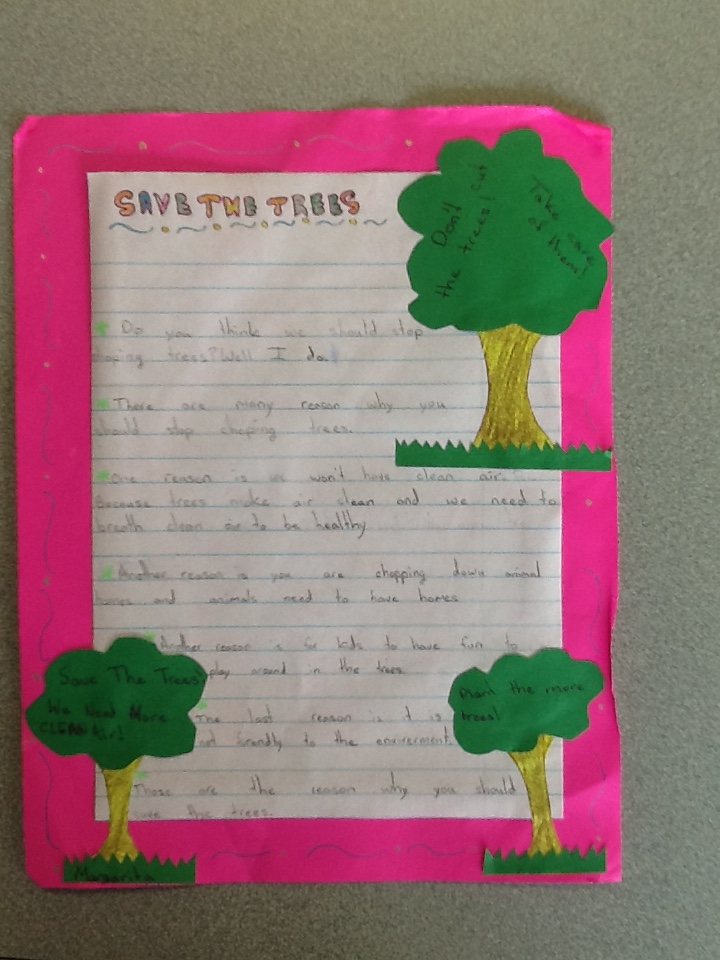 SAVE THE TREES
Don't cut
the trees!
Take care
of them!
Do you think we should stop
choping trees? Well I do.
There are many reason why you
should stop choping trees.
One reason is we won't have clean air.
Because trees make air clean and we need to
breath clean air to be healthy
Another reason is you are chopping down animal
homes and animals need to have homes
Another reason is for kids to have fun to
play around in the trees.
The last reason is it is
not friendly to the enviverment.
These are the reason why you should
save the trees.
Save The Trees!
We Need More
CLEAN Air!
Plant the more
trees!
Margarita